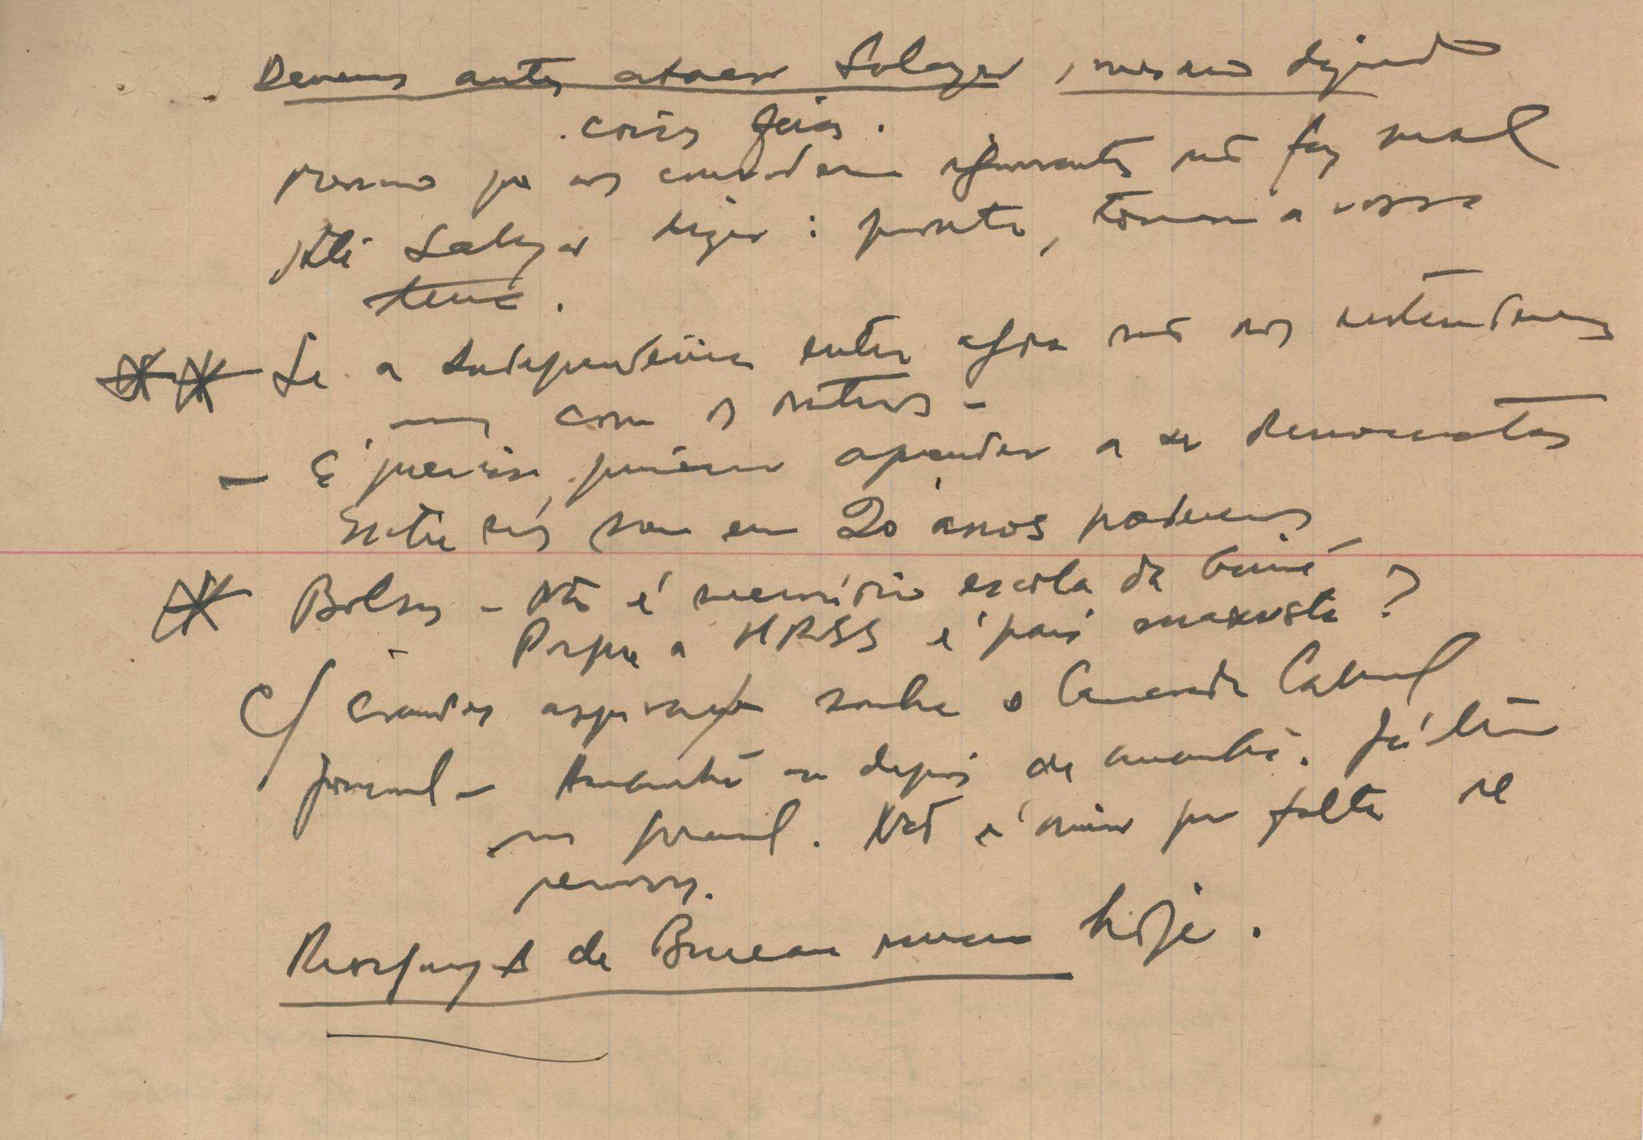 Devemos antes atacar Salazar, mesmo dizendo
coisas feias.
Mesmo que nos considerem ignorantes não faz mal
Até Salazar dizer: pronto, tomem a vossa
terra.
Se a Independência entrar agora não nos entendemos
nem com os outros -
- É preciso primeiro aprender a ser democratas
Entre nós em 20 anos podemos
Bolsas - Não é necessário escola da Guiné
Porque a URSS é país marxista?
C/ grandes aspiração sonha o Camarada Cabral
Jornal - Amanhã ou depois de amanhã. Já têm
um jornal. Não é por falta de
Reorganização do Bureau hoje.